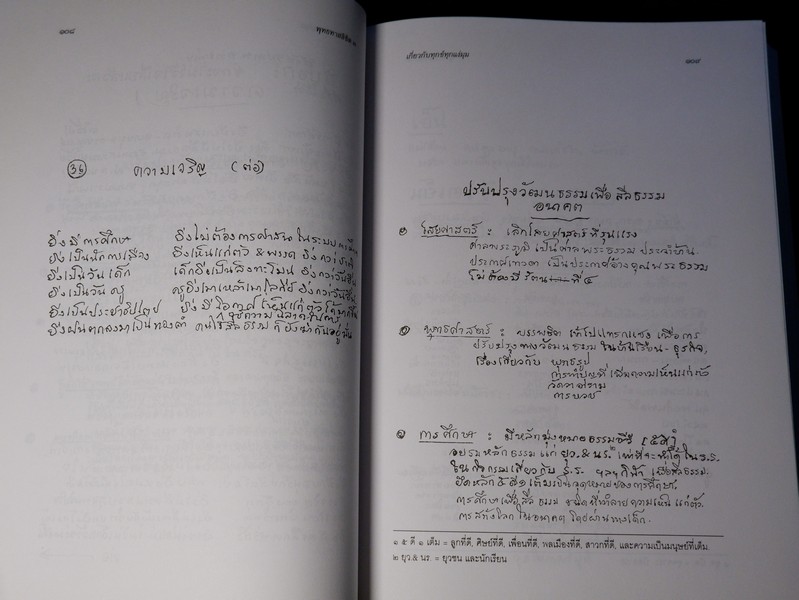 ๑๐๘
พุทธทาสลิขิต ๑
36 ความเจริญ (ต่อ)
ยิ่งมีการศึกษา ยิ่งไม่ต้องการศาสนาในระบบการศึกษา
ยิ่งเป็นนักการเมือง ยิ่งเห็นแก่ตัว & พรรค ยิ่งกว่า
ยิ่งเป็นวันเด็ก เด็กยิ่งเป็นลิงทะโมน ยิ่งกว่าวันอื่น
ยิ่งเป็นวันครู ครูยิ่งเมาเหล้าเมาโลกีย์ ยิ่งกว่าวันอื่น
ยิ่งเป็นประชาธิปไตย ยิ่งมีโอกาสเห็นแก่ตัวได้มากขึ้น
ยิ่งฝนตกลงมาเป็นทองคำ คนไร้ศีลธรรมก็ยิ่งฆ่ากันอยู่นั่น
เกี่ยวกับทุกข์ทุกแง่มุม
๑๐๙
ปรับปรุงวัฒนธรรมเพื่อศีลธรรม
อนาคต
๏ ไสยศาสตร์ : เลิกไสยศาสตร์ที่รุนแรง
ศาลพระภูมิ เป็นศาลพระธรรม ประจำบ้าน
ประกาศเทวดา เป็นประกาศอ้างคุณพระธรรม
ไม่ต้องมีรัตน ที่ ๔
๏ พุทธศาสตร์ : บรรพชิต เพื่อการ
ปรับปรุงทางวัฒนธรรม ธุรกิจ,
เรื่องเกี่ยวกับ พุทธรูป
การทำบุญที่เพิ่มความเห็นแก่ตัว
วัดวาอาราม
การบวช
๏ การศึกษา : มีหลักมุ่งหมายธรรมชีวี [๕ ๕]๑
อบรมหลักธรรมแก่ ยุว. & นร.๒ เท่าที่จะทำได้ ใน ร.ร.
ในกิจกรรมเกี่ยวกับ ร.ร. เพื่อศีลธรรม.
ยึดหลัก ๕ ดี ๑ เต็ม เป็นจุดหมายของการศึกษา.
การศึกษาเพื่อศีลธรรม ชนิดที่ทำลายความเห็นแก่ตัว.
การสร้างโลกในอนาคต โดยผ่านทางเด็ก.
๑ ๕ ดี ๑ เต็ม = ลูกที่ดี, ศิษย์ที่ดี, เพื่อนที่ดี, พลเมืองที่ดี, สาวกที่ดี, และความเป็นมนุษย์ที่เต็ม
๒ ยุว.& นร. = ยุวชน และนักเรียน